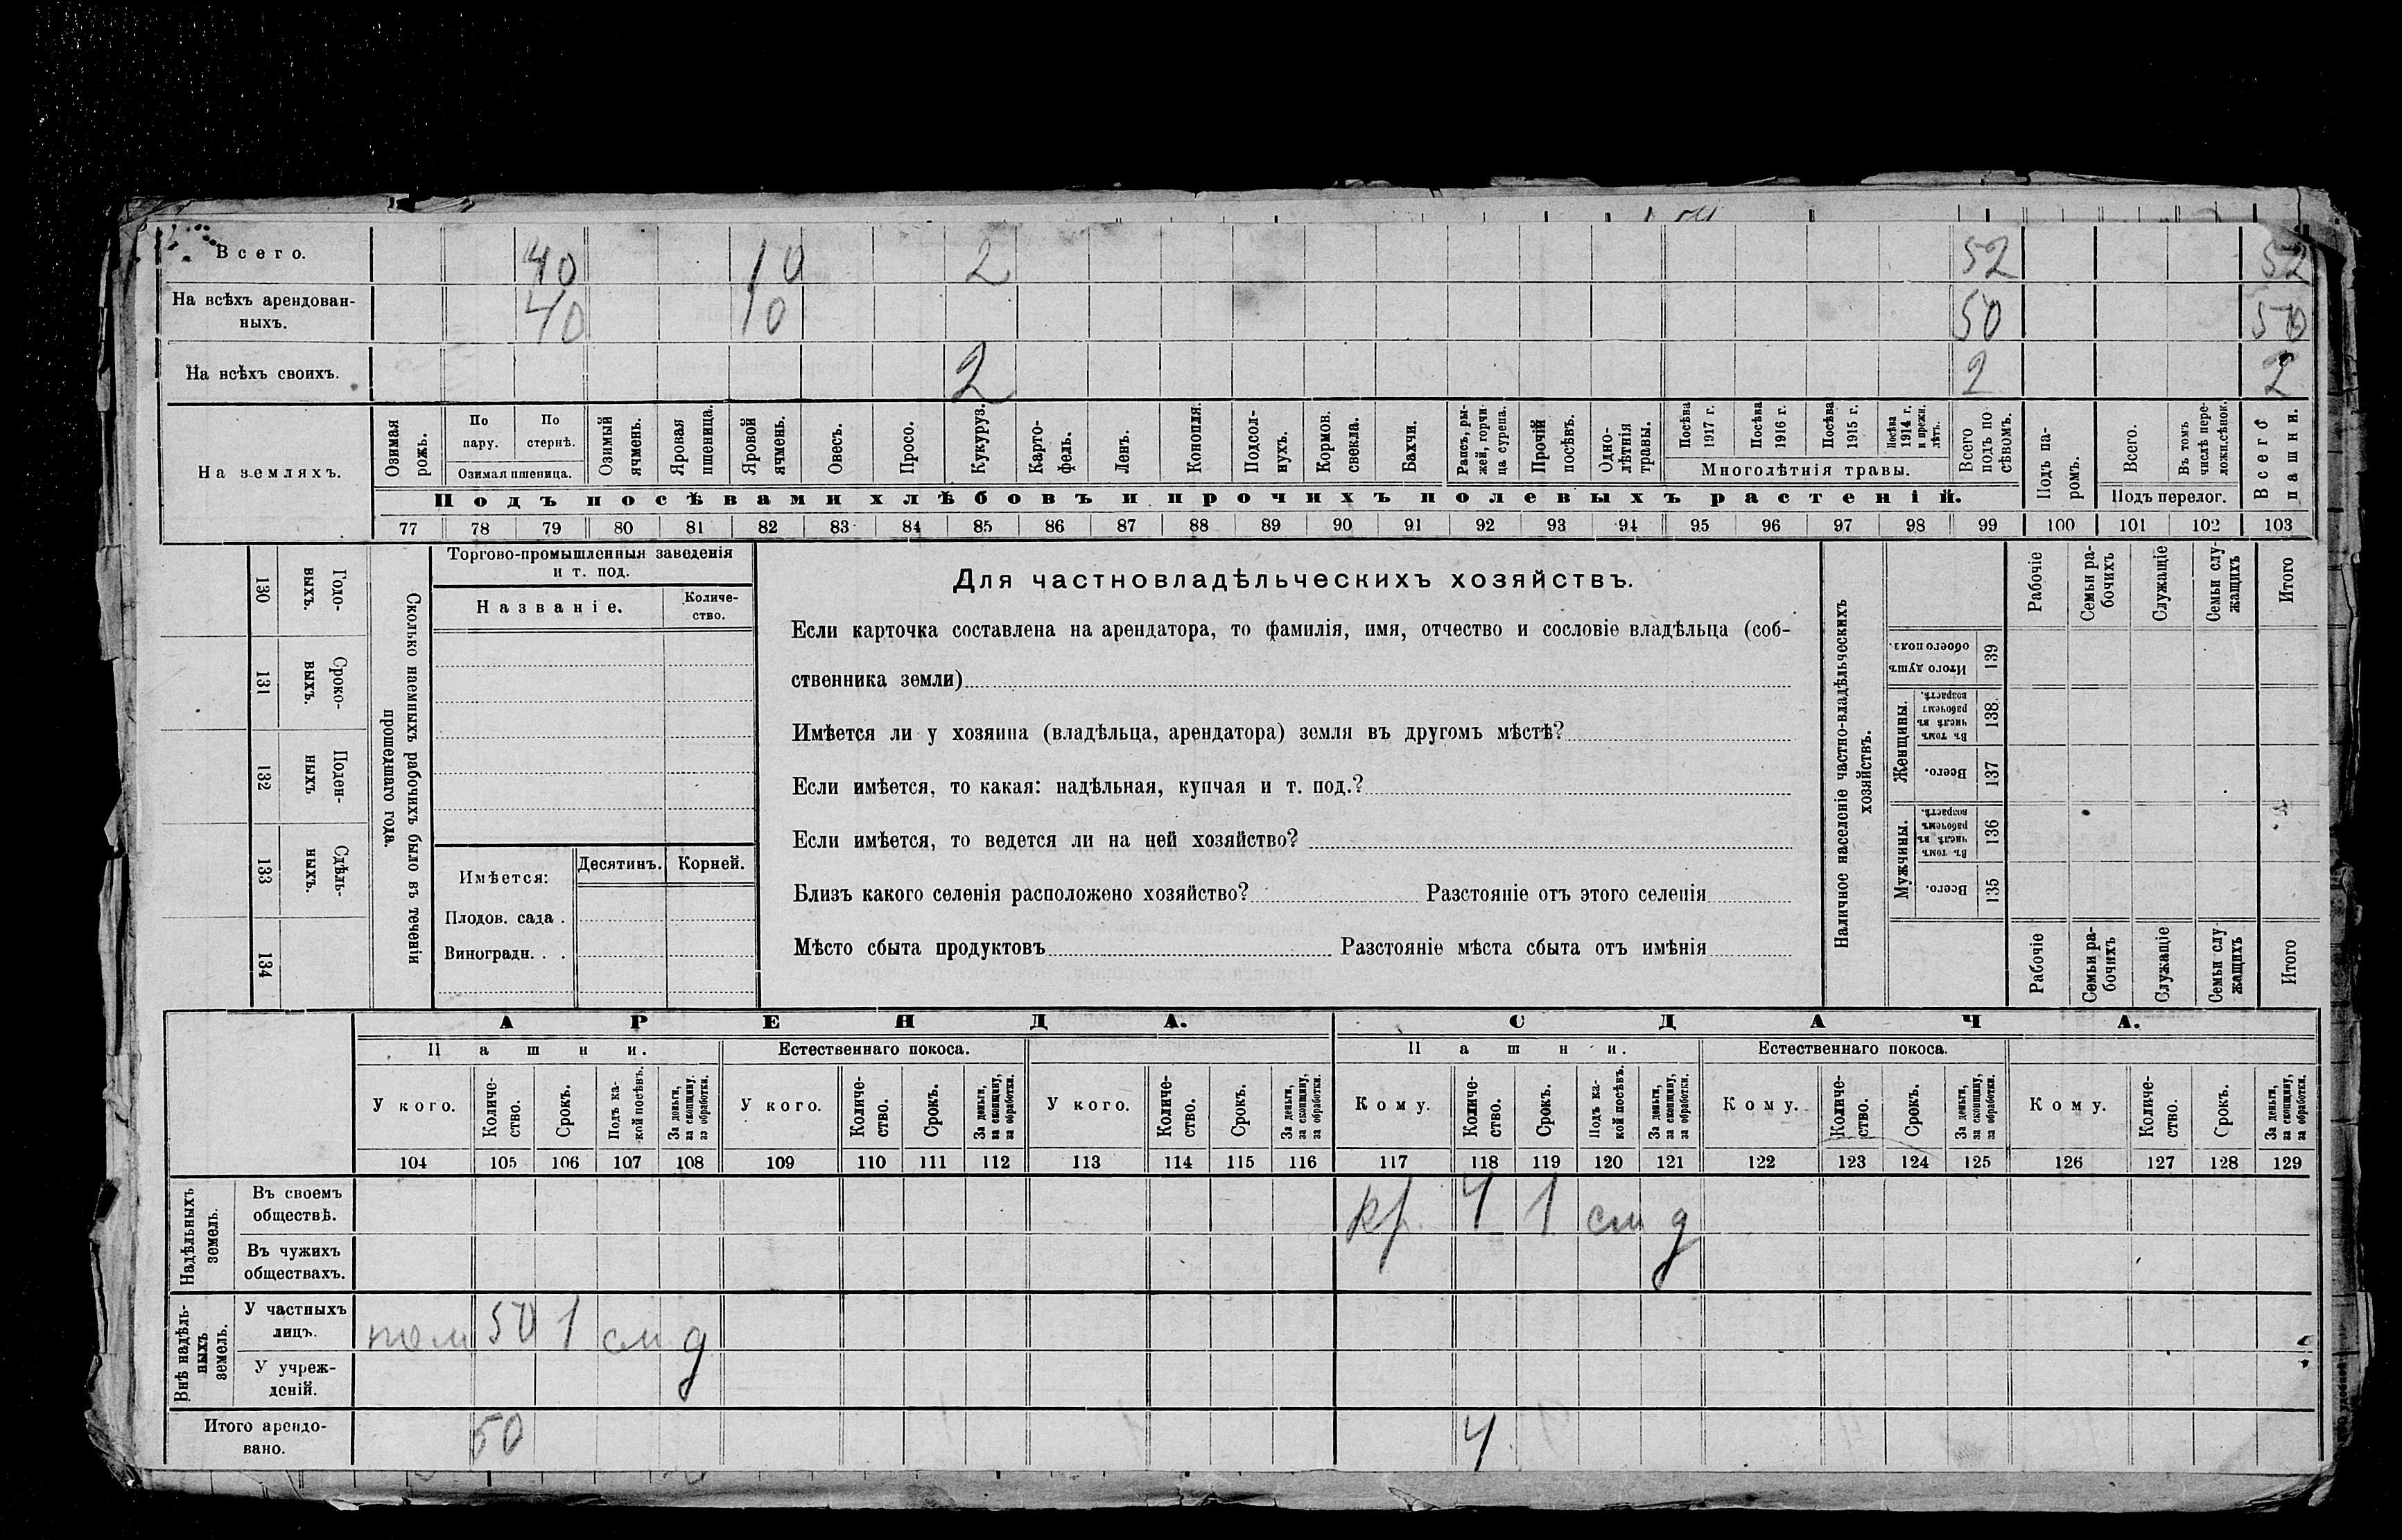 Всего. 40 10 2 52 52
На всѣхъ арендован-
ныхъ. 40 10 50 50
На всѣхъ своихъ. 2 2 2
На земляхъ.
Озимая рожь.
По пару.
По стернѣ.
Озимая пшеница.
Озимый ячмень.
Яровая пшеница.
Яровой ячмень.
Овесъ.
Просо.
Кукуруз.
Карто-
фель.
Ленъ.
Конопля.
Подсол-
нухъ.
Кормов. свекла.
Бахчи.
Рапсъ, ры-
жей, горчи-
ца сурепа.
Прочій посѣвъ.
Одно-
лѣтнія травы.
Посѣва 1917 г.
Посѣва 1916 г.
Посѣва 1915 г.
Посѣва 1914 г. и прежн. лѣтъ.
Многолѣтнія травы.
Всего подъ по
сѣвомъ.
Подъ па-
ромъ.
Всего.
Въ томъ числѣ пере-
ложн.сѣнок.
Подъ перелог.
Всего пашни.
Подъ посѣвами хлѣбовъ и прочихъ полевыхъ растеній.
77 78 79 80 81 82 83 84 85 86 87 88 89 90 91 92 93 94 95 96 97 98 99 100 101 102 103
130 Годо-
выхъ.
131 Сроко-
выхъ.
132 Поден-
ныхъ
133 Сдѣль-
ныхъ.
134
Сколько наемныхъ рабочихъ было въ теченіи
прошедшаго года.
Торгово-промышленныя заведенія
и т. под.
Названіе.
Количе-
ство.
Имѣется:
Десятинъ.
Корней.
Плодов. сада .
Виноградн. . .
Для частновладѣльческихъ хозяйствъ.
Если карточка составлена на арендатора, то фамилія, имя, отчество и сословіе владѣльца (соб-
ственника земли)
Имѣется ли у хозяина (владѣльца, арендатора) земля въ другомъ мѣстѣ?
Если имѣется, то какая: надѣльная, купчая и т. под.?
Если имѣется, то ведется ли на ней хозяйство?
Близъ какого селенія расположено хозяйство? Разстояніе отъ этого селенія
Мѣсто сбыта продуктовъ Разстояніе мѣста сбыта отъ имѣнія
Наличное населеніе частно-владѣльческихъ
хозяйствъ.
Рабочіе
Семьи ра-
бочихъ
Служащіе
Семьи слу-
жащихъ
Итого
Итого душъ
обоего пола.
139
Женщины.
Въ томъ числѣ въ рабочемъ возрастѣ.
138.
Всего.
137
Мужчины.
Въ томъ числѣ въ рабочемъ возрастѣ.
136
Всего.
135
Рабочіе
Семьи ра-
бочихъ
Служащіе
Семьи слу
жащихъ
Итого
АРЕНДА. СДАЧА.
Пашни. Естественнаго покоса. Пашни. Естественнаго покоса.
У кого.
Количе-
ство.
Срокъ.
Подъ ка-
кой посѣвъ.
За деньги,
за скопщину.
за обработки.
У кого.
Количе-
ство.
Срокъ.
За деньги,
за скопщину,
за обработки.
У кого.
Количе-
ство.
Срокъ.
За деньги,
за скопщину,
за обработки.
Кому.
Количе-
ство.
Срокъ.
Подъ ка-
кой посѣвъ.
За деньги,
за скопщину,
за обработки.
Кому.
Количе-
ство.
Срокъ.
За деньги,
за скопщину,
за обработки.
Кому.
Количе-
ство.
Срокъ.
За деньги,
за скопщину,
за обработки.
104 105 106 107 108 109 110 111 112 113 114 115 116 117 118 119 120 121 122 123 124 125 126 127 128 129
Надѣльныхъ
земель.
Въ своемъ
обществѣ. кр. 4 1 см д
Въ чужихъ
обществахъ.
Внѣ надѣль-
ныхъ
земель.
У частныхъ
лицъ. пом 50 1 см д
У учреж-
деній.
Итого арендо-
вано. 50 4